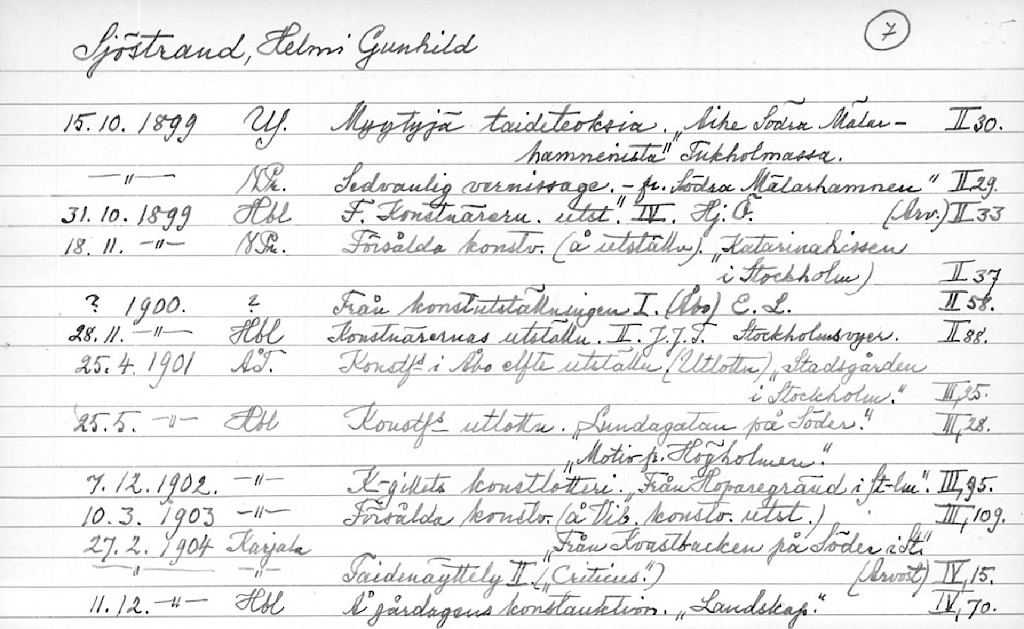 7
Sjöstrand, Helmi Gunhild
15.10.1899 US. Myytyjä taideteoksia. „Aihe Södra Mälar-
hamnenista" Tukholmassa. II 30.
—"— NPr. Sedvanlig vernissage. - fr. Södra Mälarhamnen" II 29.
31.10.1899 Hbl F. Konstnärern. utst". IV. Hj. Ö. (Arv.) II 33
18.11. —"— NPr. Försålda konstv. (å utställn). „Katarinahissen
i Stockholm) II 37
? 1900. ? Från konstutställningen I. (Åbo) E. L. II 58.
28.11. —"— Hbl Konstnärernas utställn. II. J.J.T. Stockholmsvyer. II 88.
25.4.1901 ÅT. Konstfs i Åbo elfte utställn (Utlottn) „Stadsgården
i Stockholm." III, 25.
25.5. —"— Hbl Konstfs utlottn. „Lundagatan på Söder." III, 28.
„Motiv fr. Högholmen."
7.12.1902. —"— K-gillets konstlotteri. „Från Hoparegränd i St-lm". III, 95.
10.3.1903 —"— Försålda konstv. (å Vib. konstv. utst.) III, 109.
27.2.1904 Karjala „Från Kvastbacken på Söder i St."
—"— —"— Taidenäyttely II („Criticus".) (Arvost) IV, 15.
11.12. —"— Hbl Å gårdagens konstauktion. „Landskap." IV, 70.